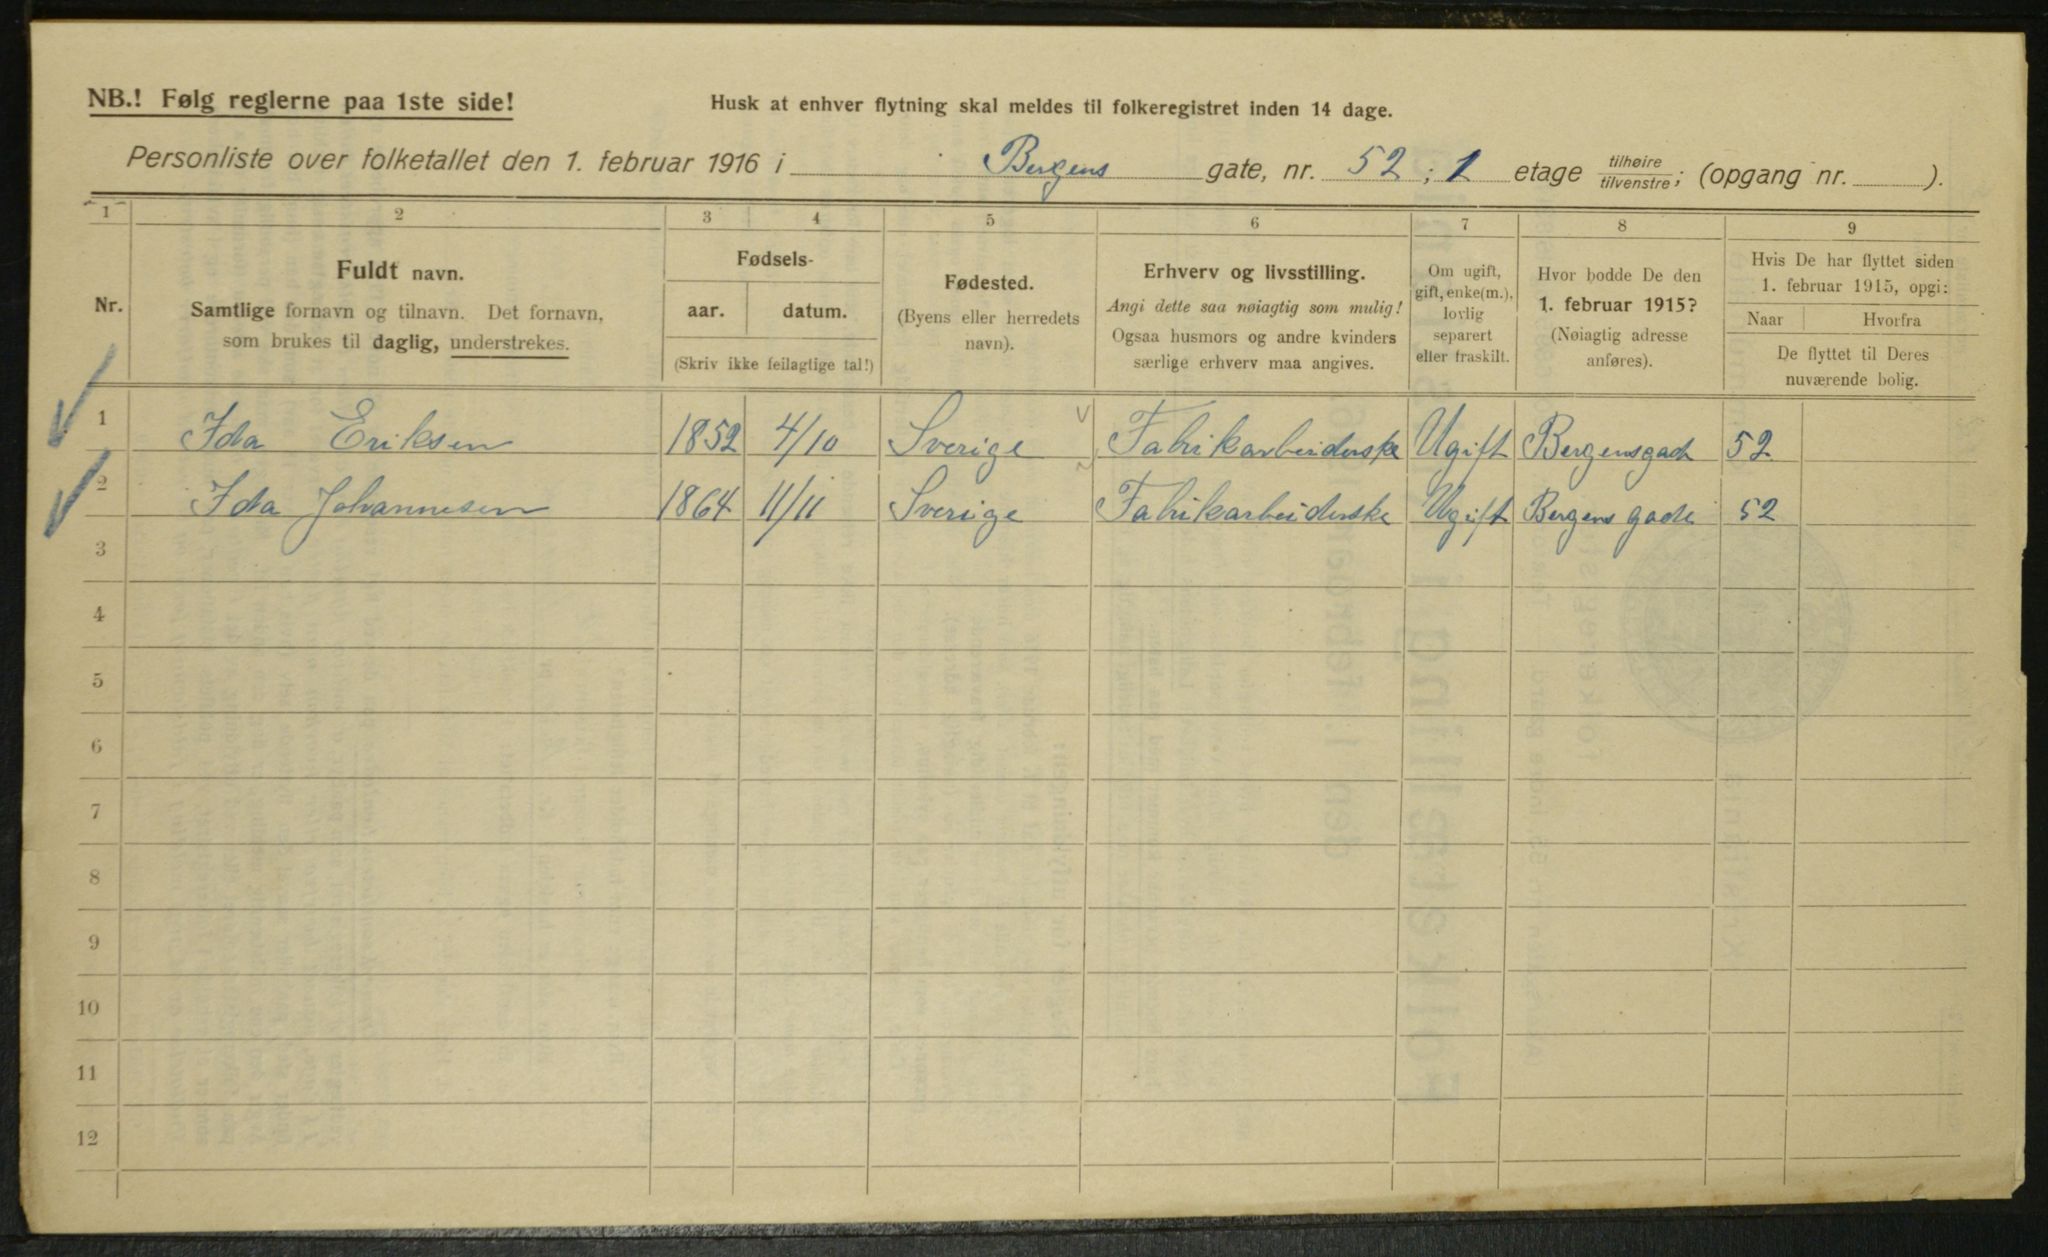 NB.! Følg reglerne paa 1ste side!
Husk at enhver flytning skal meldes til folkeregistret inden 14 dage.
Personliste over folketallet den 1. februar 1916 i Bergens gate, nr. 52 ; 1 etage tilhøire / tilvenstre; (opgang nr. ).
1 2 3 4 5 6 7 8 9
Nr.
Fuldt navn.
Samtlige fornavn og tilnavn. Det fornavn,
som brukes til daglig, understrekes.
Fødsels-
aar. datum.
(Skriv ikke feilagtige tal!)
Fødested.
(Byens eller herredets
navn).
Erhverv og livsstilling.
Angi dette saa nøiagtig som mulig!
Ogsaa husmors og andre kvinders
særlige erhverv maa angives.
Om ugift,
gift, enke(m.),
lovlig
separert
eller fraskilt.
Hvor bodde De den
1. februar 1915?
(Nøiagtig adresse
anføres).
Hvis De har flyttet siden
1. februar 1915, opgi:
Naar Hvorfra
De flyttet til Deres
nuværende bolig.
1 Ida Eriksen 1852 4/10 Sverige Fabrikarbeiderske Ugift Bergensgade 52
2 Ida Johannesen 1864 11/11 Sverige Fabrikarbeiderske Ugift Bergens gade 52
3
4
5
6
7
8
9
10
11
12